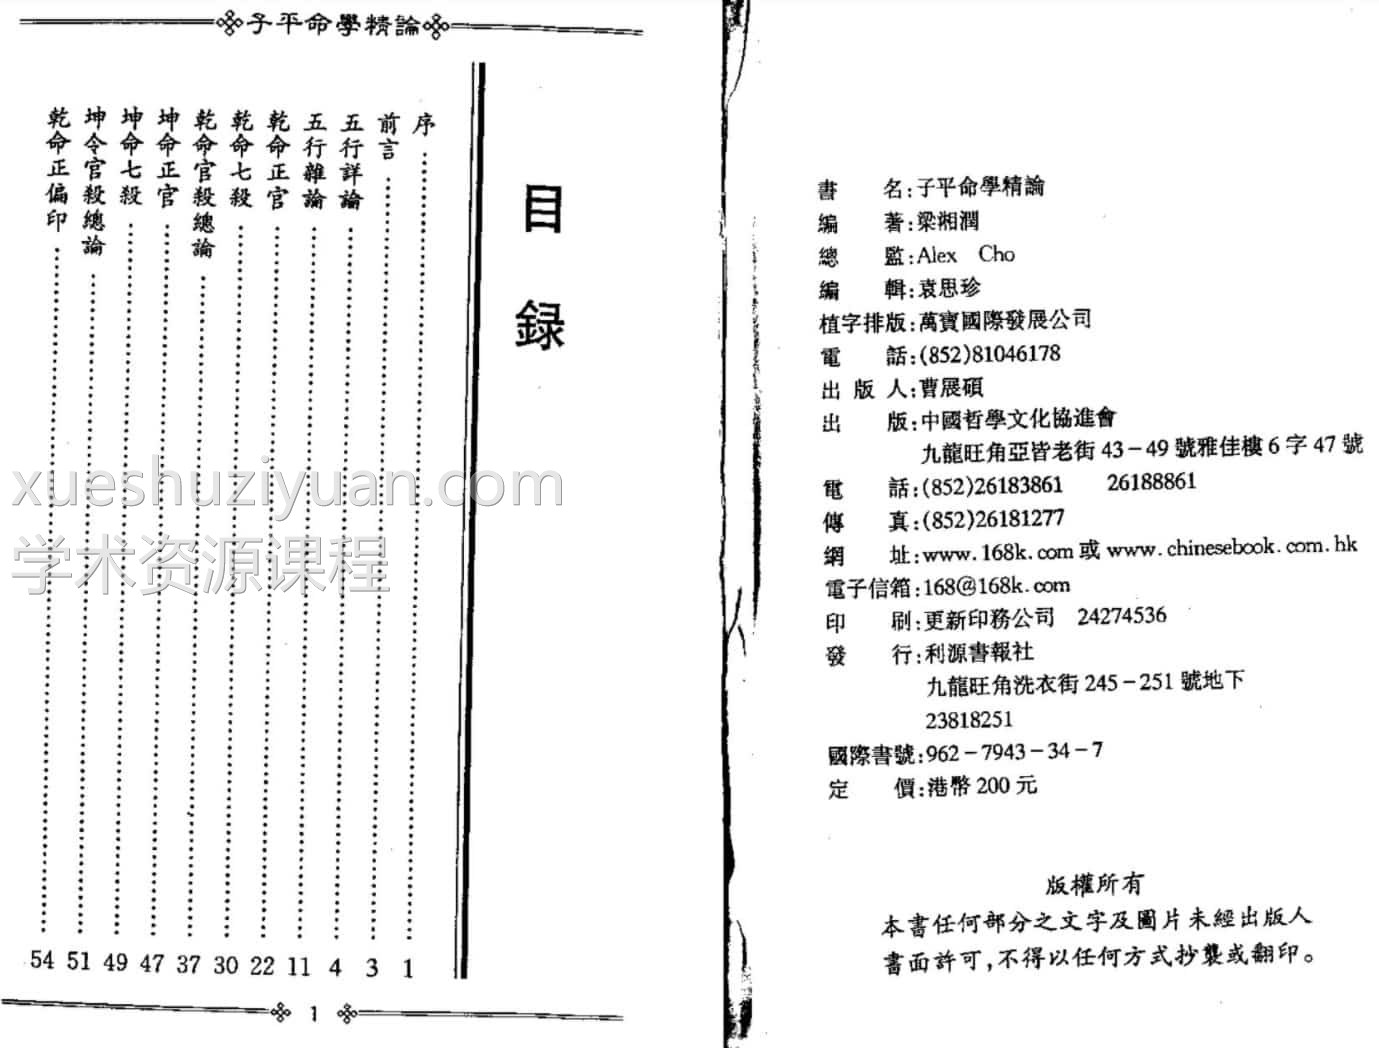 子平命學精論
目錄
序 1
前言 3
五行詳論 4
五行雜論 11
乾命正官 22
乾命七殺 30
乾命官殺總論 37
坤命正官 47
坤命七殺 49
坤令官殺總論 51
乾命正偏印 54
1
書名:子平命學精論
編著:梁湘潤
總監:Alex Cho
編輯:袁思珍
植字排版:萬寶國際發展公司
電話:(852)81046178
出版人:曹展碩
出版:中國哲學文化協進會
九龍旺角亞皆老街43-49號雅佳樓6字47號
電話:(852)26183861 26188861
傳真:(852)26181277
網址:www.168k.com或www.chinesebook.com.hk
電子信箱:168@168k.com
印刷:更新印務公司 24274536
發行:利源書報社
九龍旺角洗衣街245-251號地下
23818251
國際書號:962-7943-34-7
定價:港幣200元
版權所有
本書任何部分之文字及圖片未經出版人
書面許可,不得以任何方式抄襲或翻印。
xueshuziyuan.com
学术资源课程